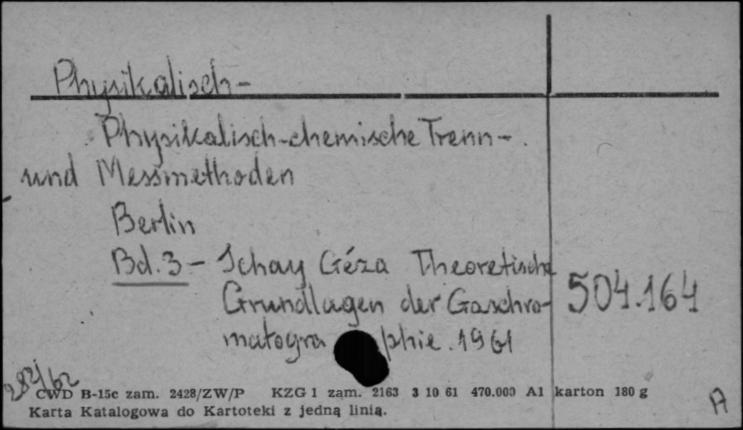 Physikalisch-
Physikalisch-chemische Trenn-
und Messmethoden
Berlin
Bd. 3 - Schay Géza Theoretische
Grundlagen der Gaschro-
matographie. 1961
504.164
282/62
CWD B-15c zam. 2428/ZW/P KZG 1 zam. 2163 3 10 61 470.000 A1 karton 180 g
Karta Katalogowa do Kartoteki z jedną linią.
A